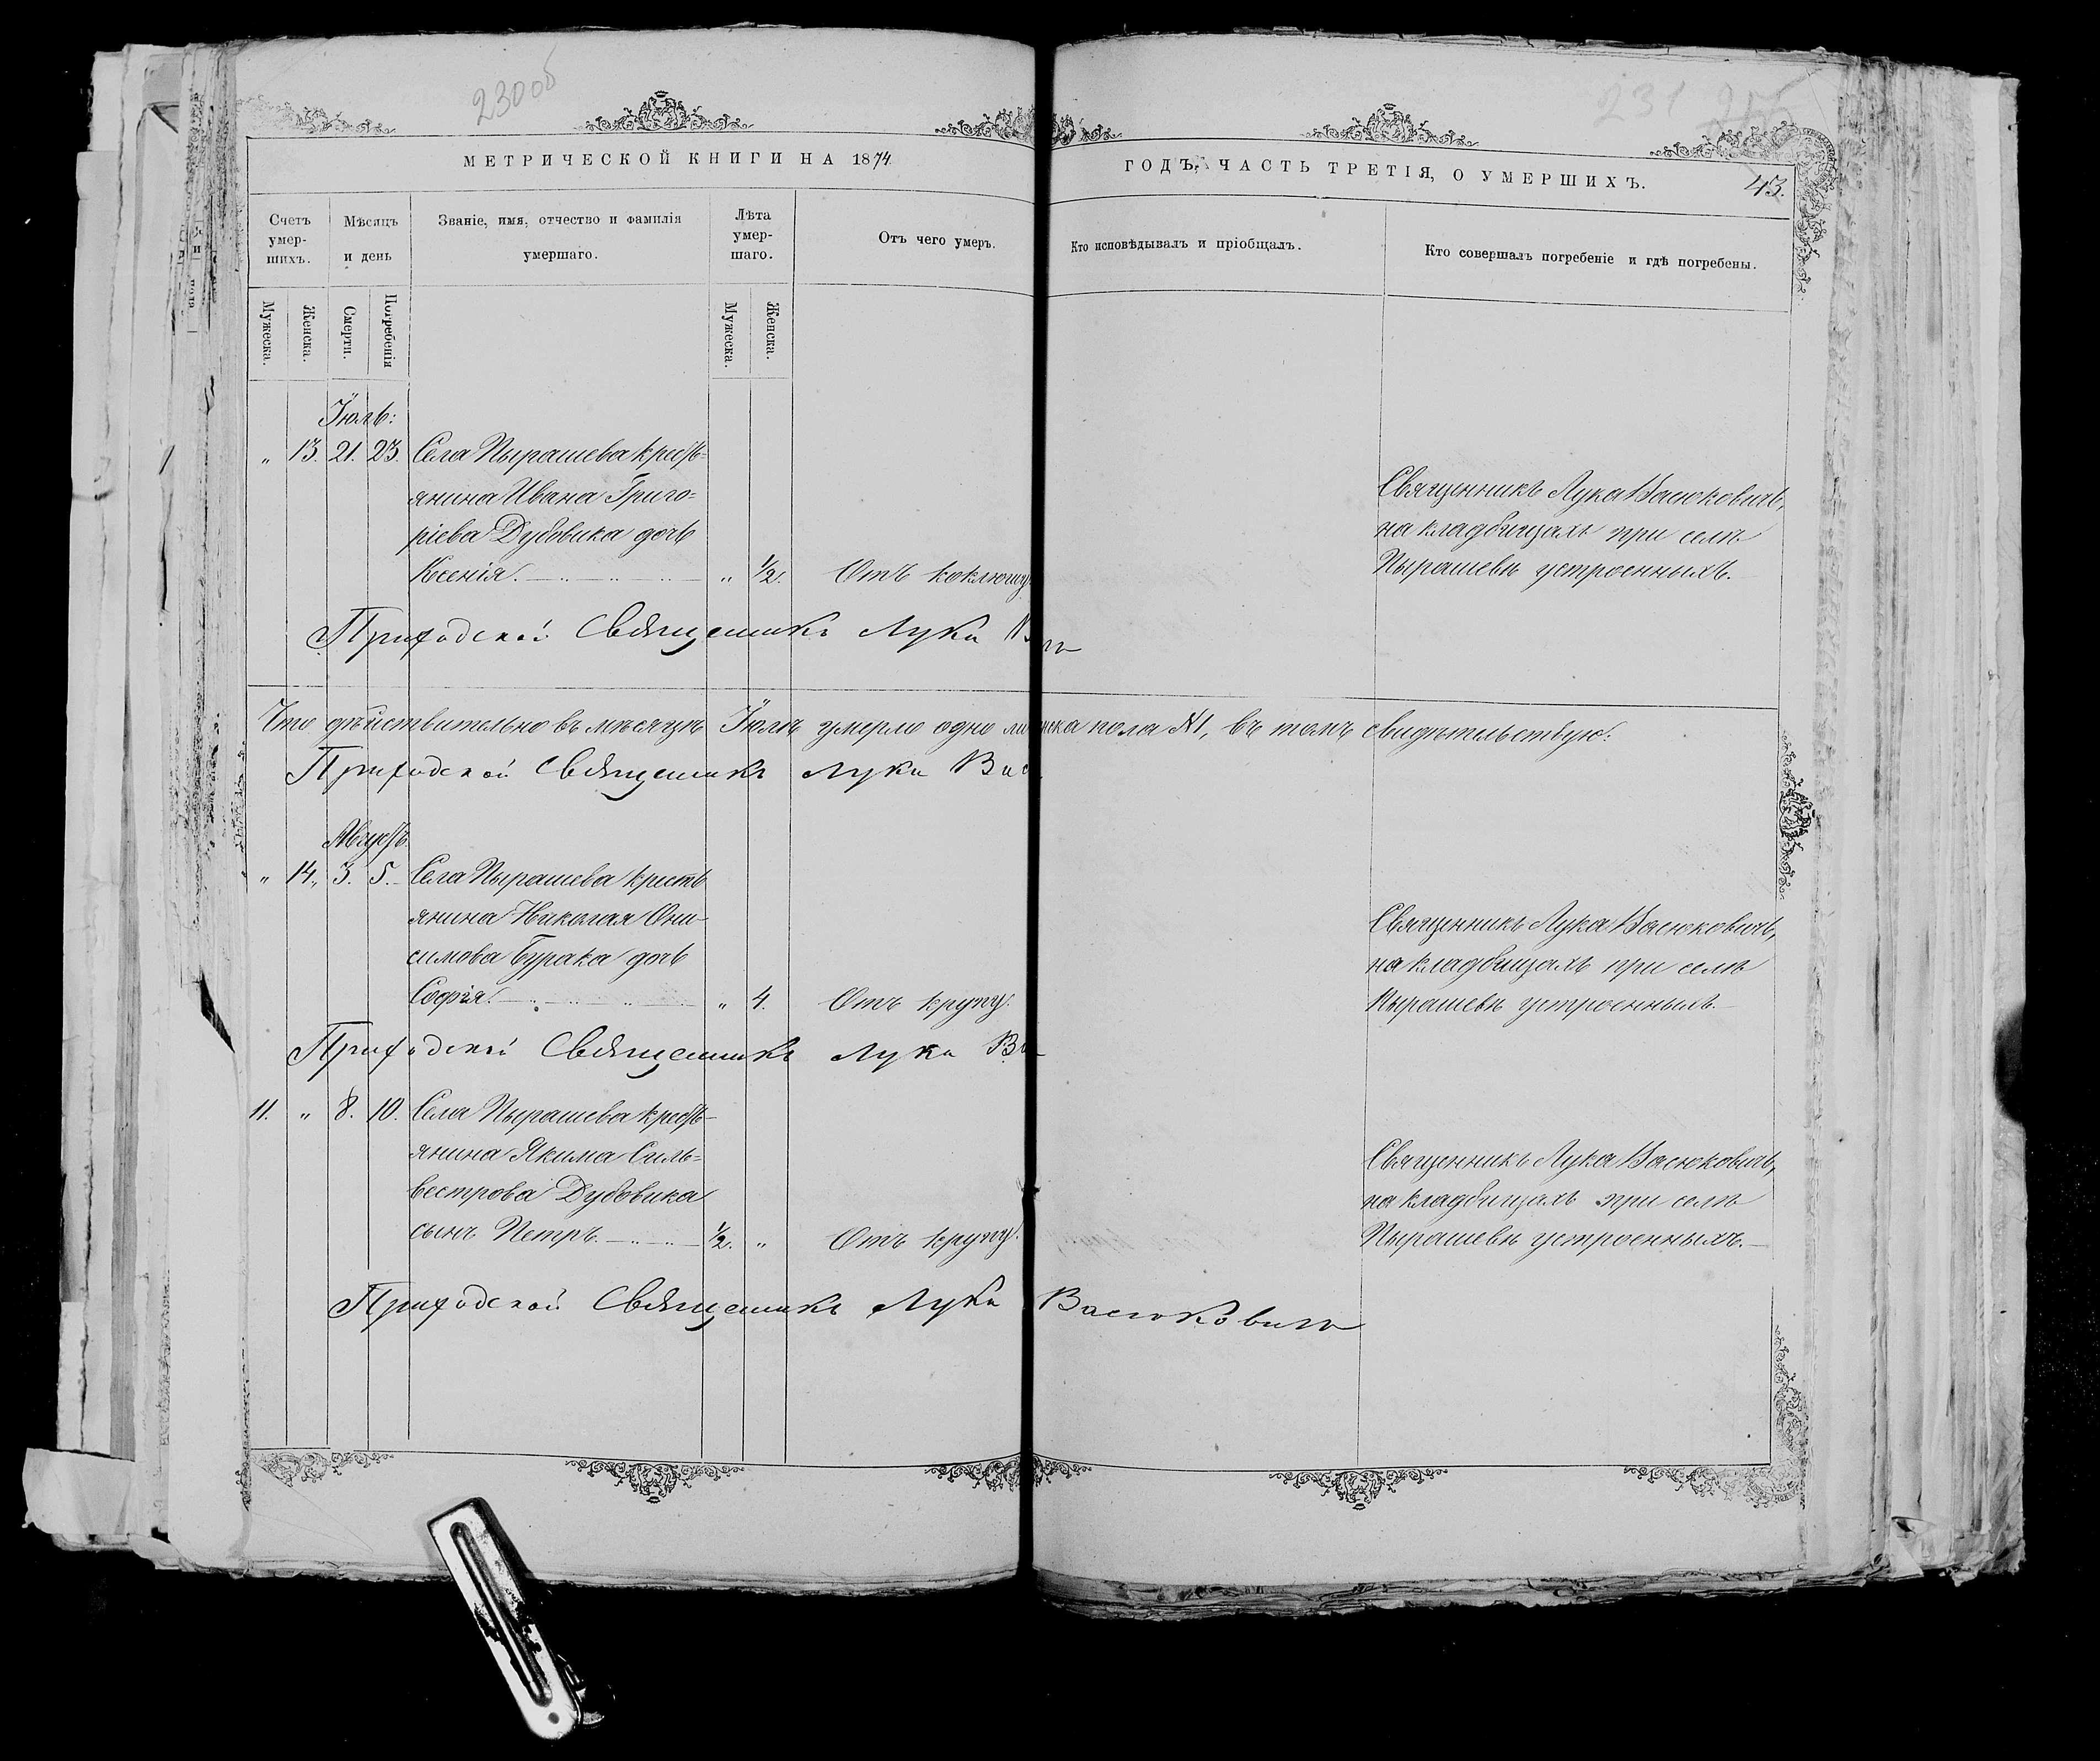 230об
231 255
МЕТРИЧЕСКОЙ КНИГИ НА 1874
ГОДЪ, ЧАСТЬ ТРЕТІЯ, О УМЕРШИХЪ.
43.
Счетъ умер-шихъ.
Мѣсяцъ и день
Званіе, имя, отчество и фамилія умершаго.
Лѣта умер-шаго.
Отъ чего умеръ.
Кто исповѣдывалъ и пріобщалъ.
Кто совершалъ погребеніе и гдѣ погребены.
Мужеска.
Женска.
Смерти.
Погребенія
Мужеска.
Женска.
Іюль:
„ 13. 21. 23. Села Пырашева кресть-
янина Ивана Григо-
ріева Дубовика дочь
Ксенія. „ ½. Отъ коклюшу
Священникъ Лука Васюковичъ,
на кладбищахъ при селѣ
Пырашевѣ устроенныхъ.
Приходской Священникъ Лука
Что дѣйствительно въ мѣсяцѣ Іюлѣ умерло одно ска пола №1, въ томъ свидѣтельствую:
Приходской Священникъ Лука Вас
Августъ.
„ 14. 3. 5. Села Пырашева кресть
янина Николая Они-
симова Бурака дочь
Софія. „ 4. Отъ крупу.
Священникъ Лука Васюковичъ,
на кладбищахъ при селѣ
Пырашевѣ устроенныхъ.
Приходской Священникъ Лука Ва
11. „ 8. 10. Села Пырашева кресть-
янина Якима Силь-
вестрова Дубовика
сынъ Петръ. ½. „ Отъ крупу.
Священникъ Лука Васюковичъ,
на кладбищахъ при селѣ
Пырашевѣ устроенныхъ.
Приходской Священникъ Лука Васюковичъ